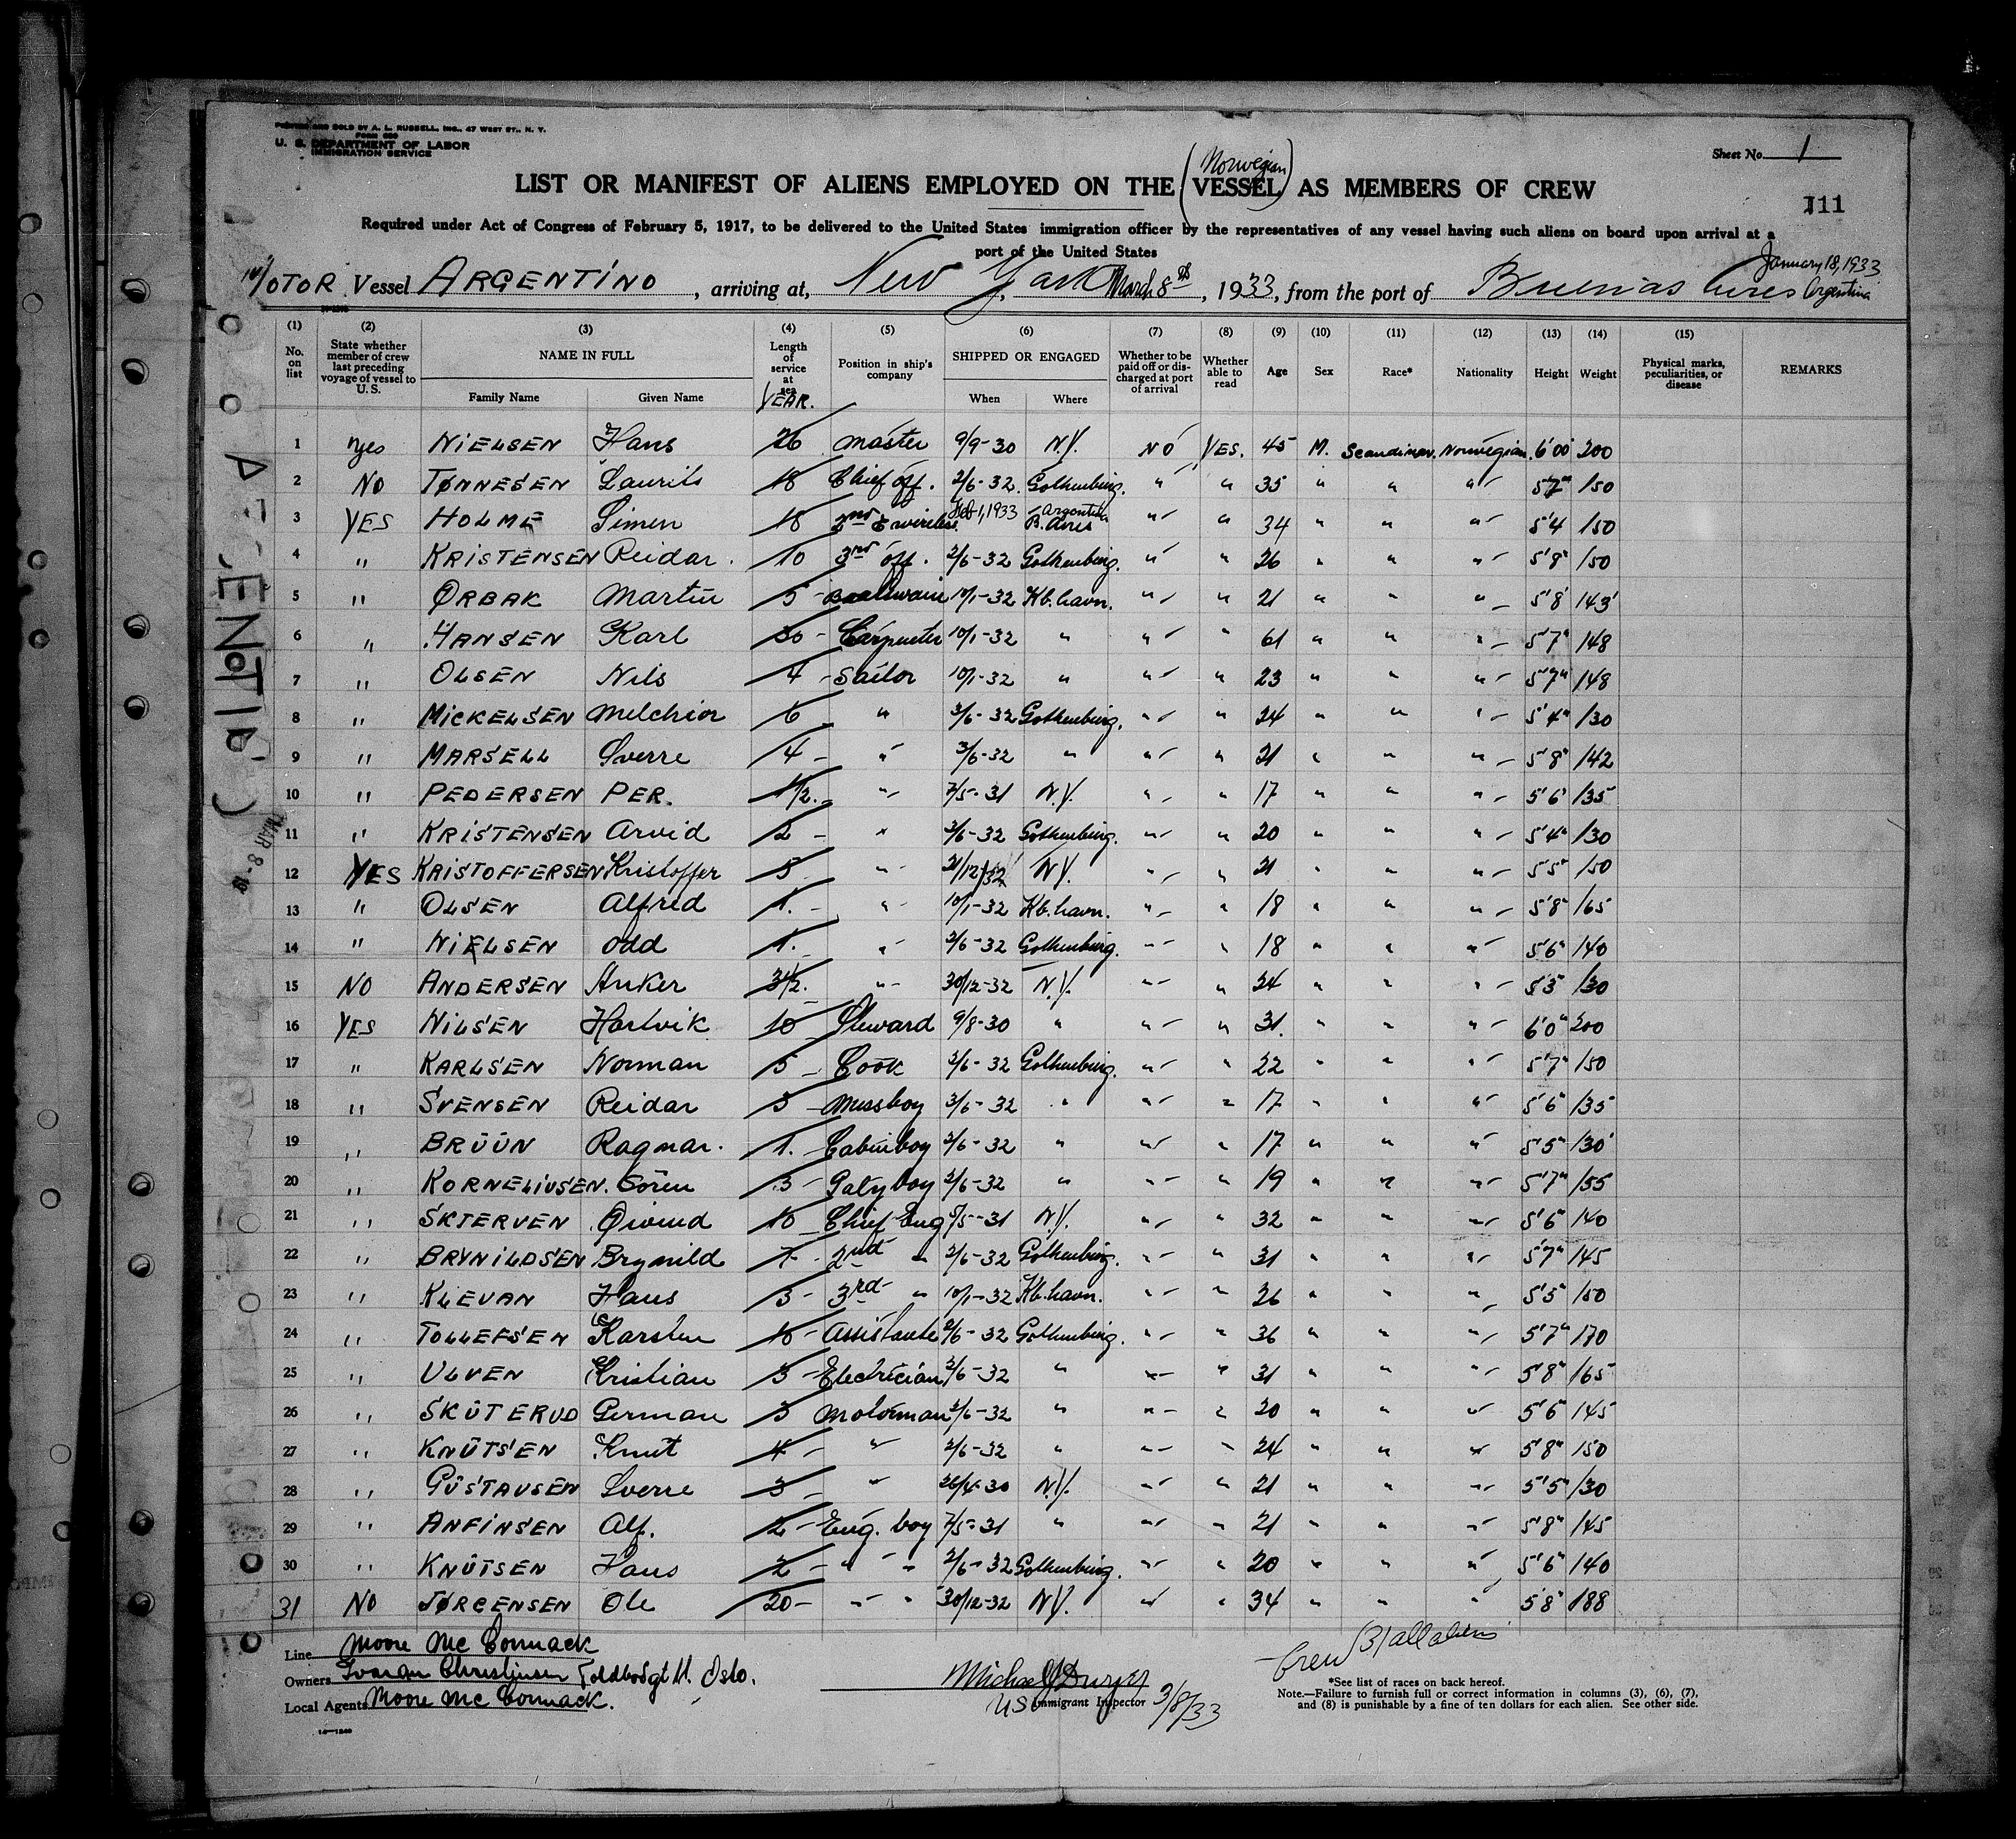 PRINTED AND SOLD BY A. L. RUSSELL, INC., 47 WEST ST., N. Y.
FORM 689
U. S. DEPARTMENT OF LABOR
IMMIGRATION SERVICE
Sheet No. 1
(Norwegian)
LIST OR MANIFEST OF ALIENS EMPLOYED ON THE VESSEL AS MEMBERS OF CREW
111
Required under Act of Congress of February 5, 1917, to be delivered to the United States immigration officer by the representatives of any vessel having such aliens on board upon arrival at a
port of the United States
January 18, 1933
MOTOR Vessel ARGENTINO, arriving at, New York March 8th, 1933, from the port of Buenas Aires Argentina
(1) (2) (3) (4) (5) (6) (7) (8) (9) (10) (11) (12) (13) (14) (15)
No. on list
State whether member of crew last preceding voyage of vessel to U. S.
NAME IN FULL
Family Name Given Name
Length of service at sea YEAR.
Position in ship's company
SHIPPED OR ENGAGED
When Where
Whether to be paid off or discharged at port of arrival
Whether able to read
Age Sex Race* Nationality Height Weight
Physical marks, peculiarities, or disease
REMARKS
1 Yes NIELSEN Hans 26 Master 9/9-30 N.Y. NO YES. 45 M. Scandinav. Norwegian. 6'00 200
2 NO TØNNESEN Laurits 18 Chief off. 2/6-32. Gothenburg. " " 35 " " " 5'7" 150
3 YES HOLME Simen 18 2nd & wireless Feb 1, 1933 Argentina B. Aires " " 34 " " " 5'4 150
4 " KRISTENSEN Reidar. 10 3rd off. 2/6-32 Gothenburg. " " 26 " " " 5'8" 150
5 " ØRBAK Martin 5 Boatswain 10/1-32 Kb.havn. " " 21 " " " 5'8' 143
6 " HANSEN Karl 30 Carpenter 10/1-32 " " " 61 " " " 5'7" 148
7 " OLSEN Nils 4 Sailor 10/1-32 " " " 23 " " " 5'7" 148
8 " MICKELSEN Melchior 6 " 2/6-32 Gothenburg. " " 24 " " " 5'4" 130
9 " MARSELL Sverre 4 " 3/6-32 " " " 21 " " " 5'8" 142
10 " PEDERSEN PER. 1/2. " 7/5-31 N.Y. " " 17 " " " 5'6' 135
11 " KRISTENSEN Arvid 2 " 2/6-32 Gothenburg. " " 20 " " " 5'4" 130
12 YES KRISTOFFERSEN Kristoffer 5 " 21/12/32 N.Y. " " 21 " " " 5'5" 150
13 " OLSEN Alfred 1. " 10/1-32 Kb.havn. " " 18 " " " 5'8" 165
14 " NIELSEN Odd 1. " 2/6-32 Gothenburg. " " 18 " " " 5'6" 140
15 NO ANDERSEN Anker 3 1/2. " 30/12-32 N.Y. " " 24 " " " 5'3" 130
16 YES NILSEN Hartvik 10 Steward 9/8-30 " " " 31. " " " 6'0" 200
17 " KARLSEN Norman 5 Cook 2/6-32 Gothenburg. " " 22 " " " 5'7" 150
18 " SVENSEN Reidar 3 Messboy 3/6-32 " " " 17 " " " 5'6" 135
19 " BRÜÜN Ragnar. 1. Cabinboy 2/6-32 " " " 17 " " " 5'5" 130
20 " KORNELIUSEN. Sören 3 Galyboy 2/6-32 " " " 19 " " " 5'7" 155
21 " SKTERVEN Øivind 10 Chief Eng 5/5-31 N.Y. " " 32 " " " 5'6" 140
22 " BRYNILDSEN Brynild 7 2nd " 2/6-32 Gothenburg. " " 31 " " " 5'7" 145
23 " KLEVAN Hans 3 3rd " 10/1-32 Kb.havn. " " 26 " " " 5'5" 150
24 " TOLLEFSEN Karsten 10 Assistante 2/6-32 Gothenburg. " " 36 " " " 5'7" 170
25 " ULVEN Kristian 3 Electrician 2/6-32 " " " 31 " " " 5'8" 165
26 " SKÜTERUD German 3 Motorman 2/6-32 " " " 20 " " " 5'6" 145
27 " KNÜTSEN Knut 4 " 2/6-32 " " " 24 " " " 5'8" 150
28 " GÜSTAVSEN Sverre 3 " 26/4-30 N.Y. " " 21 " " " 5'5" 130
29 " ANFINSEN Alf. 2 Eng. boy 7/5-31 " " " 21 " " " 5'8" 145
30 " KNÜTSEN Hans 2 " " 2/6-32 Gothenburg. " " 20 " " " 5'6" 140
31 NO JØRGENSEN Ole 20 " " 30/12-32 N.Y. " " 34 " " " 5'8" 188
Line Moore Mc Cormack
Owners Ivaran Christensen Toldbodgt 11. Oslo.
Local Agents Moore Mc Cormack.
Michael J Dwyer
US Immigrant Inspector 3/8/33
Crew 31 all aliens
*See list of races on back hereof.
Note.—Failure to furnish full or correct information in columns (3), (6), (7),
and (8) is punishable by a fine of ten dollars for each alien. See other side.
MAR 8 -